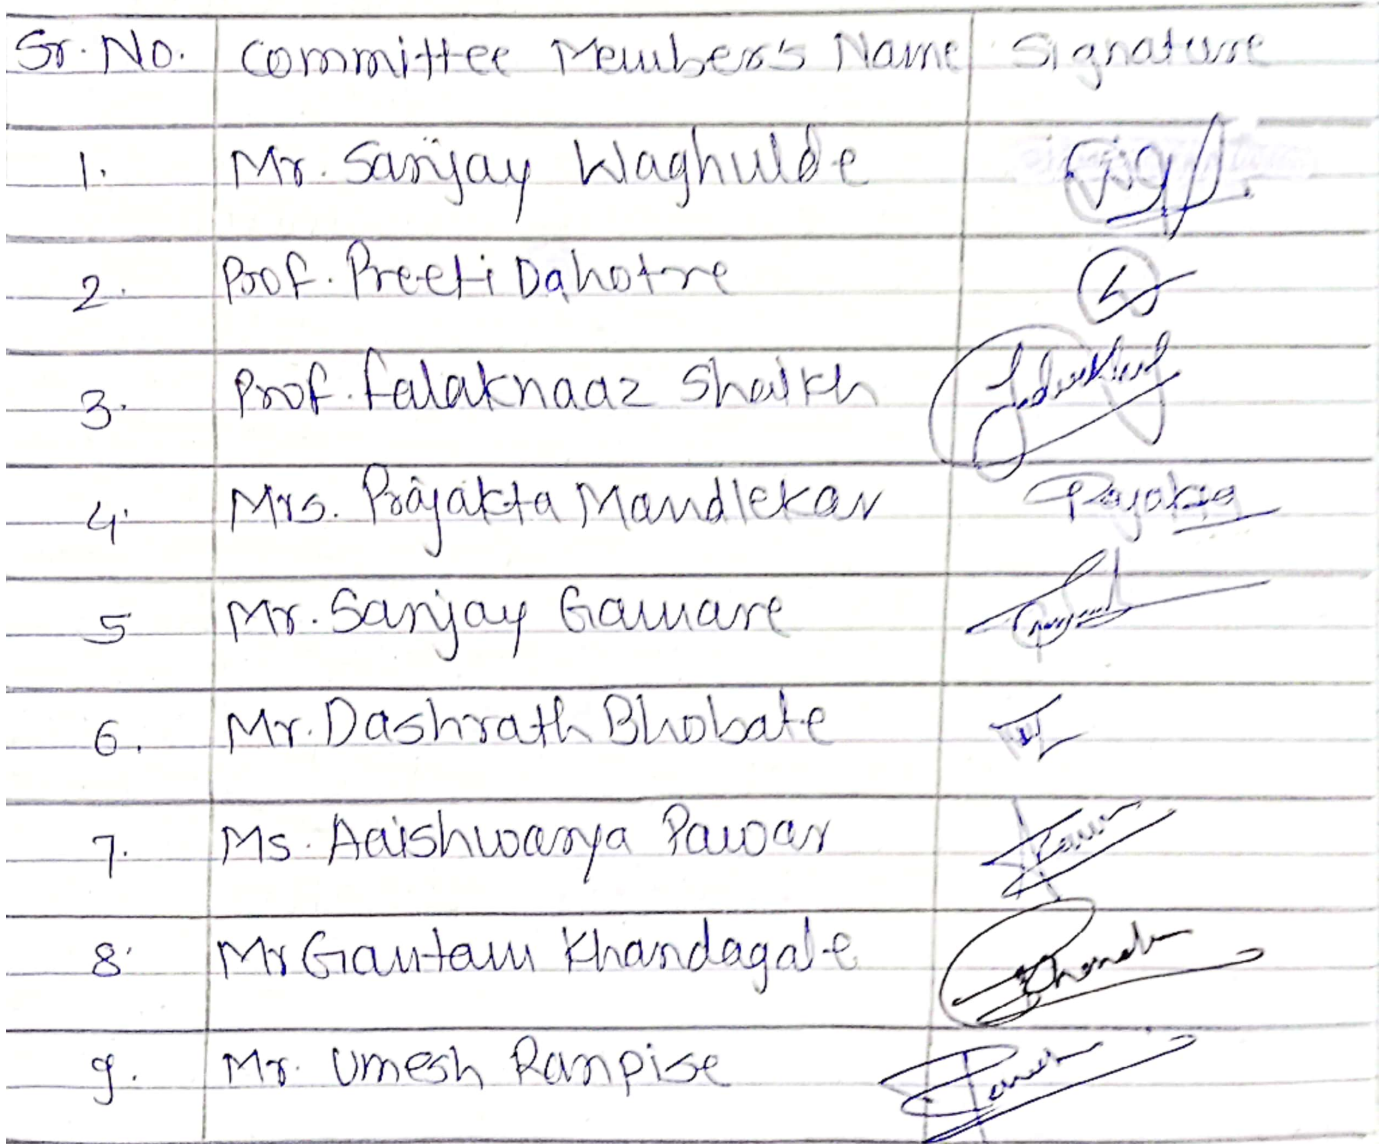 Sr. No. Committee Member's Name Signature
1. Mr. Sanjay Waghulde
2. Prof. Preeti Dahotre
3. Prof. Falaknaaz Shaikh
4. Mrs. Prajakta Mandlekar Prajakta
5 Mr. Sanjay Gaware
6. Mr. Dashrath Bhobate
7. Ms. Aaishwarya Pawar
8. Mr Gautam Khandagale
9. Mr. Umesh Ranpise